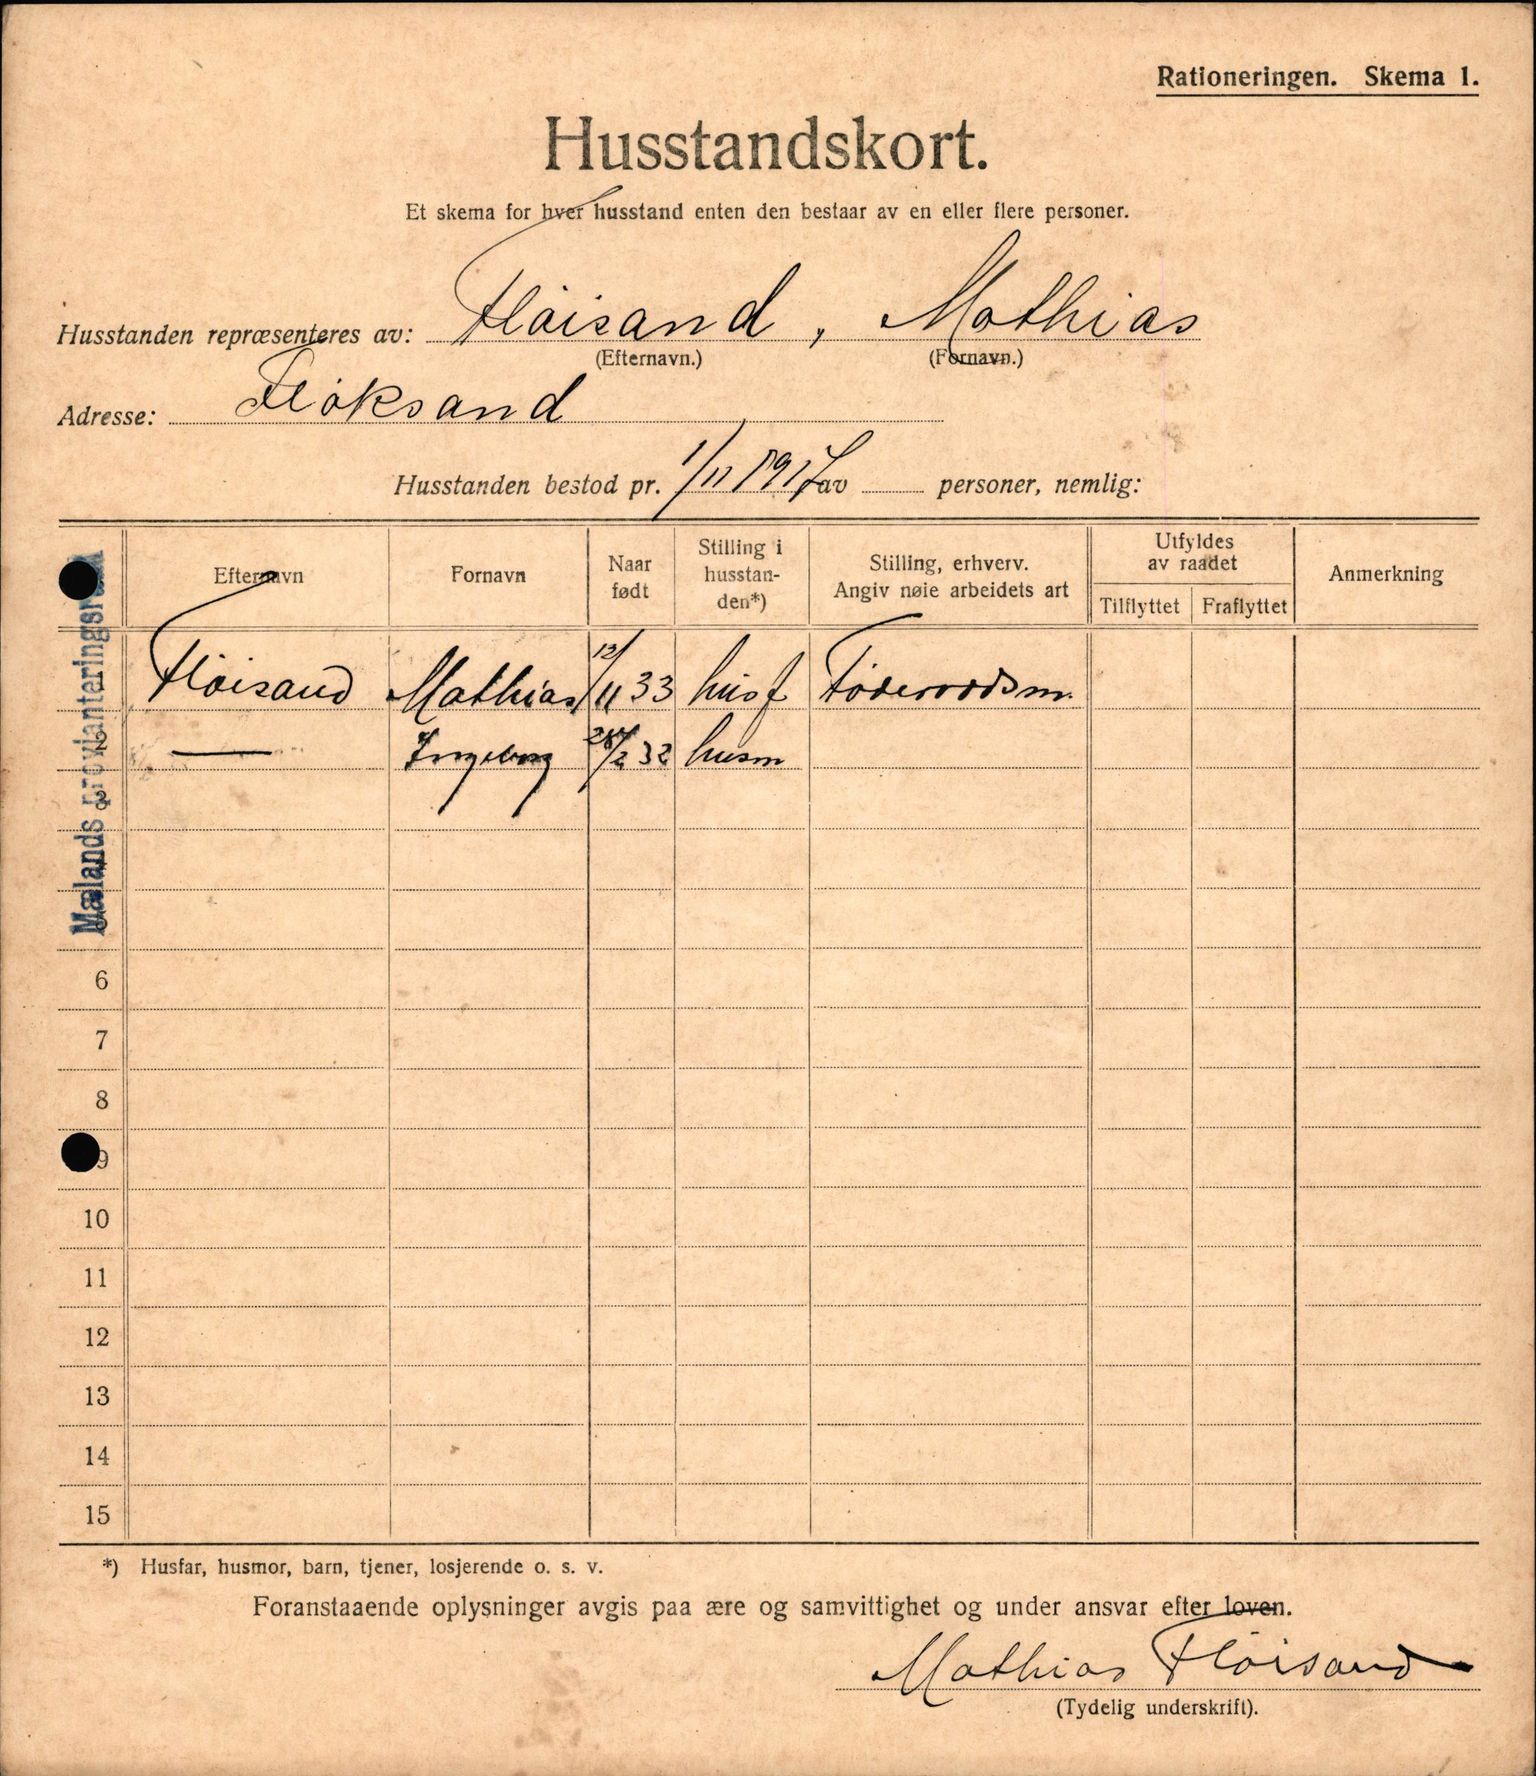 Rationeringen. Skema 1.
Husstandskort.
Et skema for hver husstand enten den bestaar av en eller flere personer.
Husstanden repræsenteres av: Fløisand, Mathias
(Efternavn.) (Fornavn.)
Adresse: Fløksand
Husstanden bestod pr. 1/11 1917 av personer, nemlig:
Efternavn Fornavn Naar født Stilling i husstanden*) Stilling, erhverv. Angiv nøie arbeidets art Utfyldes av raadet Tilflyttet Fraflyttet Anmerkning
Mælands provianteringsraad
Fløisand Mathias 12/11 33 husf Föderaadsm.
— Ingeborg 28/2 32 husm
6
7
8
9
10
11
12
13
14
15
*) Husfar, husmor, barn, tjener, losjerende o. s. v.
Foranstaaende oplysninger avgis paa ære og samvittighet og under ansvar efter loven.
Mathias Fløisand
(Tydelig underskrift).